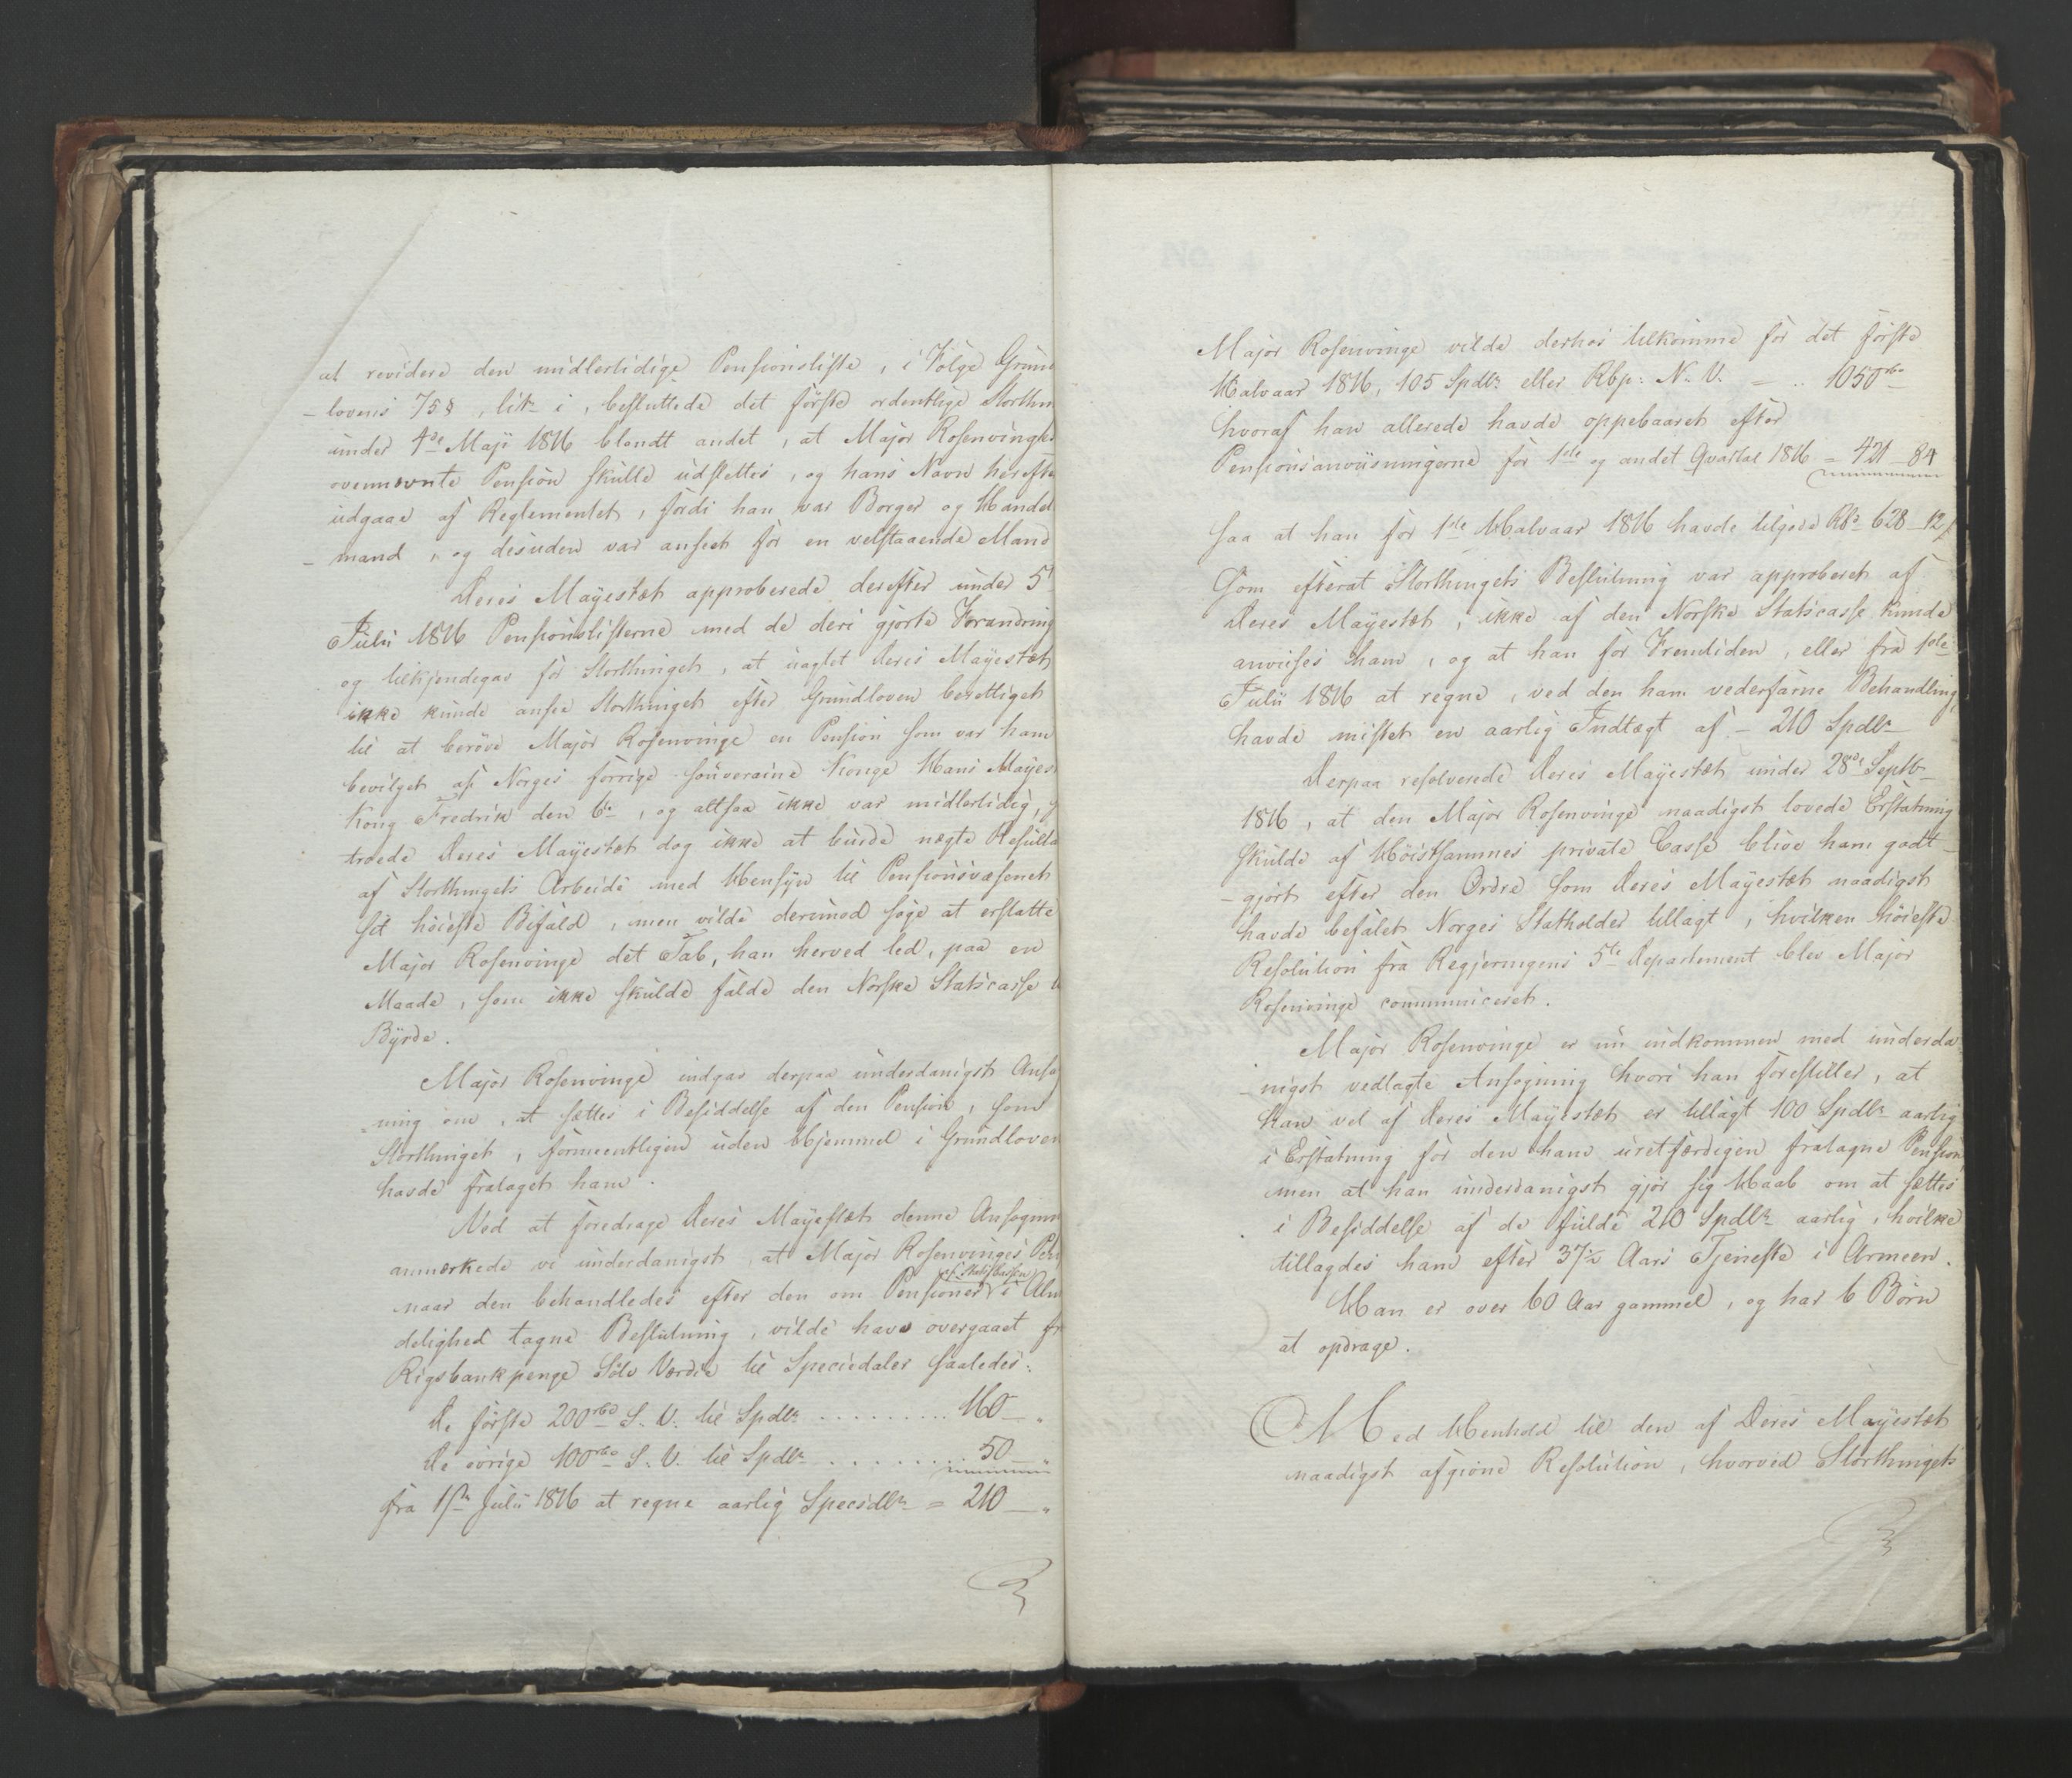 at revidere den midlertidige Pensionsliste, i Følge Grund
-lovens 75 §, litr. i, besluttede det første ordentlige Storthin
under 4de Maji 1816 blandt andet, at Major Rosenvinges
ovennævnte Pension skulle udslettes, og hans Navn herefte
udgaae af Reglementet, fordi han var Borger og Handel
-mand, og desuden var anseet for en velstaaende Mand
Deres Mayestæt approberede derefter under 5t
Julii 1816 Pensionslisterne med de deri gjorte Forandring
og tilkjendegav for Storthinget, at uagtet Deres Mayestæt
ikke kunde ansee Storthinget efter Grundloven berettiget
til at berøve Major Rosenvinge en Pension som var ham
bevilget af Norges forrige souveraine Konge Hans Mayes
Kong Fredrik den 6te, og altsaa ikke var midlertidig,
troede Deres Mayestæt dog ikke at burde nægte Resulta
af Storthingets Arbeide med Hensyn til Pensionsvæsenet
sit høieste Bifald, men vilde derimod søge at erstatte
Major Rosenvinge det Tab, han herved led, paa en
Maade, som ikke skulde falde den Norske Statscasse
Byrde.
Major Rosenvinge indgav derpaa underdanigst Ansøg
-ning om, at sættes i Besiddelse af den Pension, som
Storthinget, formeentligen uden Hjemmel i Grundloven
havde frataget ham.
Ved at foredrage Deres Mayestæt denne Ansøgnin
anmærkede vi underdanigst, at Major Rosenvinges Pen
af StatsCassen
naar den behandledes efter den om Pensioner i Alm
delighed tagne Beslutning, vilde have overgaaet fr
Rigsbankpenge Sølv Værdie til Speciedaler saaledes:
De første 200 rbd S. V. til Spdlr ......... 160 — „
De øvrige 100 rbd S. V. til Spdlr ......... 50 — „
fra 1ste Julii 1816 at regne aarlig Speciedlr = 210 — „
Major Rosenvinge vilde derhos tilkomme for det første
Halvaar 1816, 105 Spdlr eller Rbp: N. V. — .. 1050 rbd
hvoraf han allerede havde oppebaaret efter
Pensionsanviisningerne for 1ste og andet Qvartal 1816 = 421 — 84
saa at han for 1ste Halvaar 1816 havde tilgode Rbd 628 — 12
som efterat Storthingets Beslutning var approberet af
Deres Mayestæt, ikke af den Norske Statscasse kunde
anvises ham, og at han for Fremtiden, eller fra 1ste
Julii 1816 at regne, ved den ham vederfarne Behandling,
havde mistet en aarlig Indtægt af — 210 Spdlr
Derpaa resolverede Deres Mayestæt under 28de Septb
1816, at den Major Rosenvinge naadigst lovede Erstatning
skulde af Høistsammes private Casse blive ham godt
-gjort efter den Ordre som Deres Mayestæt naadigst
havde befalet Norges Statholder tillagt, hvilken høieste
Resolution fra Regjeringens 5te Departement blev Major
Rosenvinge communiceret.
Major Rosenvinge er nu indkommen med underda
-nigst vedlagte Ansøgning hvori han forestiller, at
han vel af Deres Mayestæt er tillagt 100 Spdlr aarlig
i Erstatning for den ham uretfærdigen fratagne Pension,
men at han underdanigst gjør sig Haab om at sættes
i Besiddelse af de fulde 210 Spdlr aarlig, hvilke
tillagdes ham efter 37½ Aars Tjeneste i Armeen.
Han er over 60 Aar gammel, og har 6 Børn
at opdrage.
Med Henhold til den af Deres Mayestæt
naadigst afgivne Resolution, hvorved Storthingets